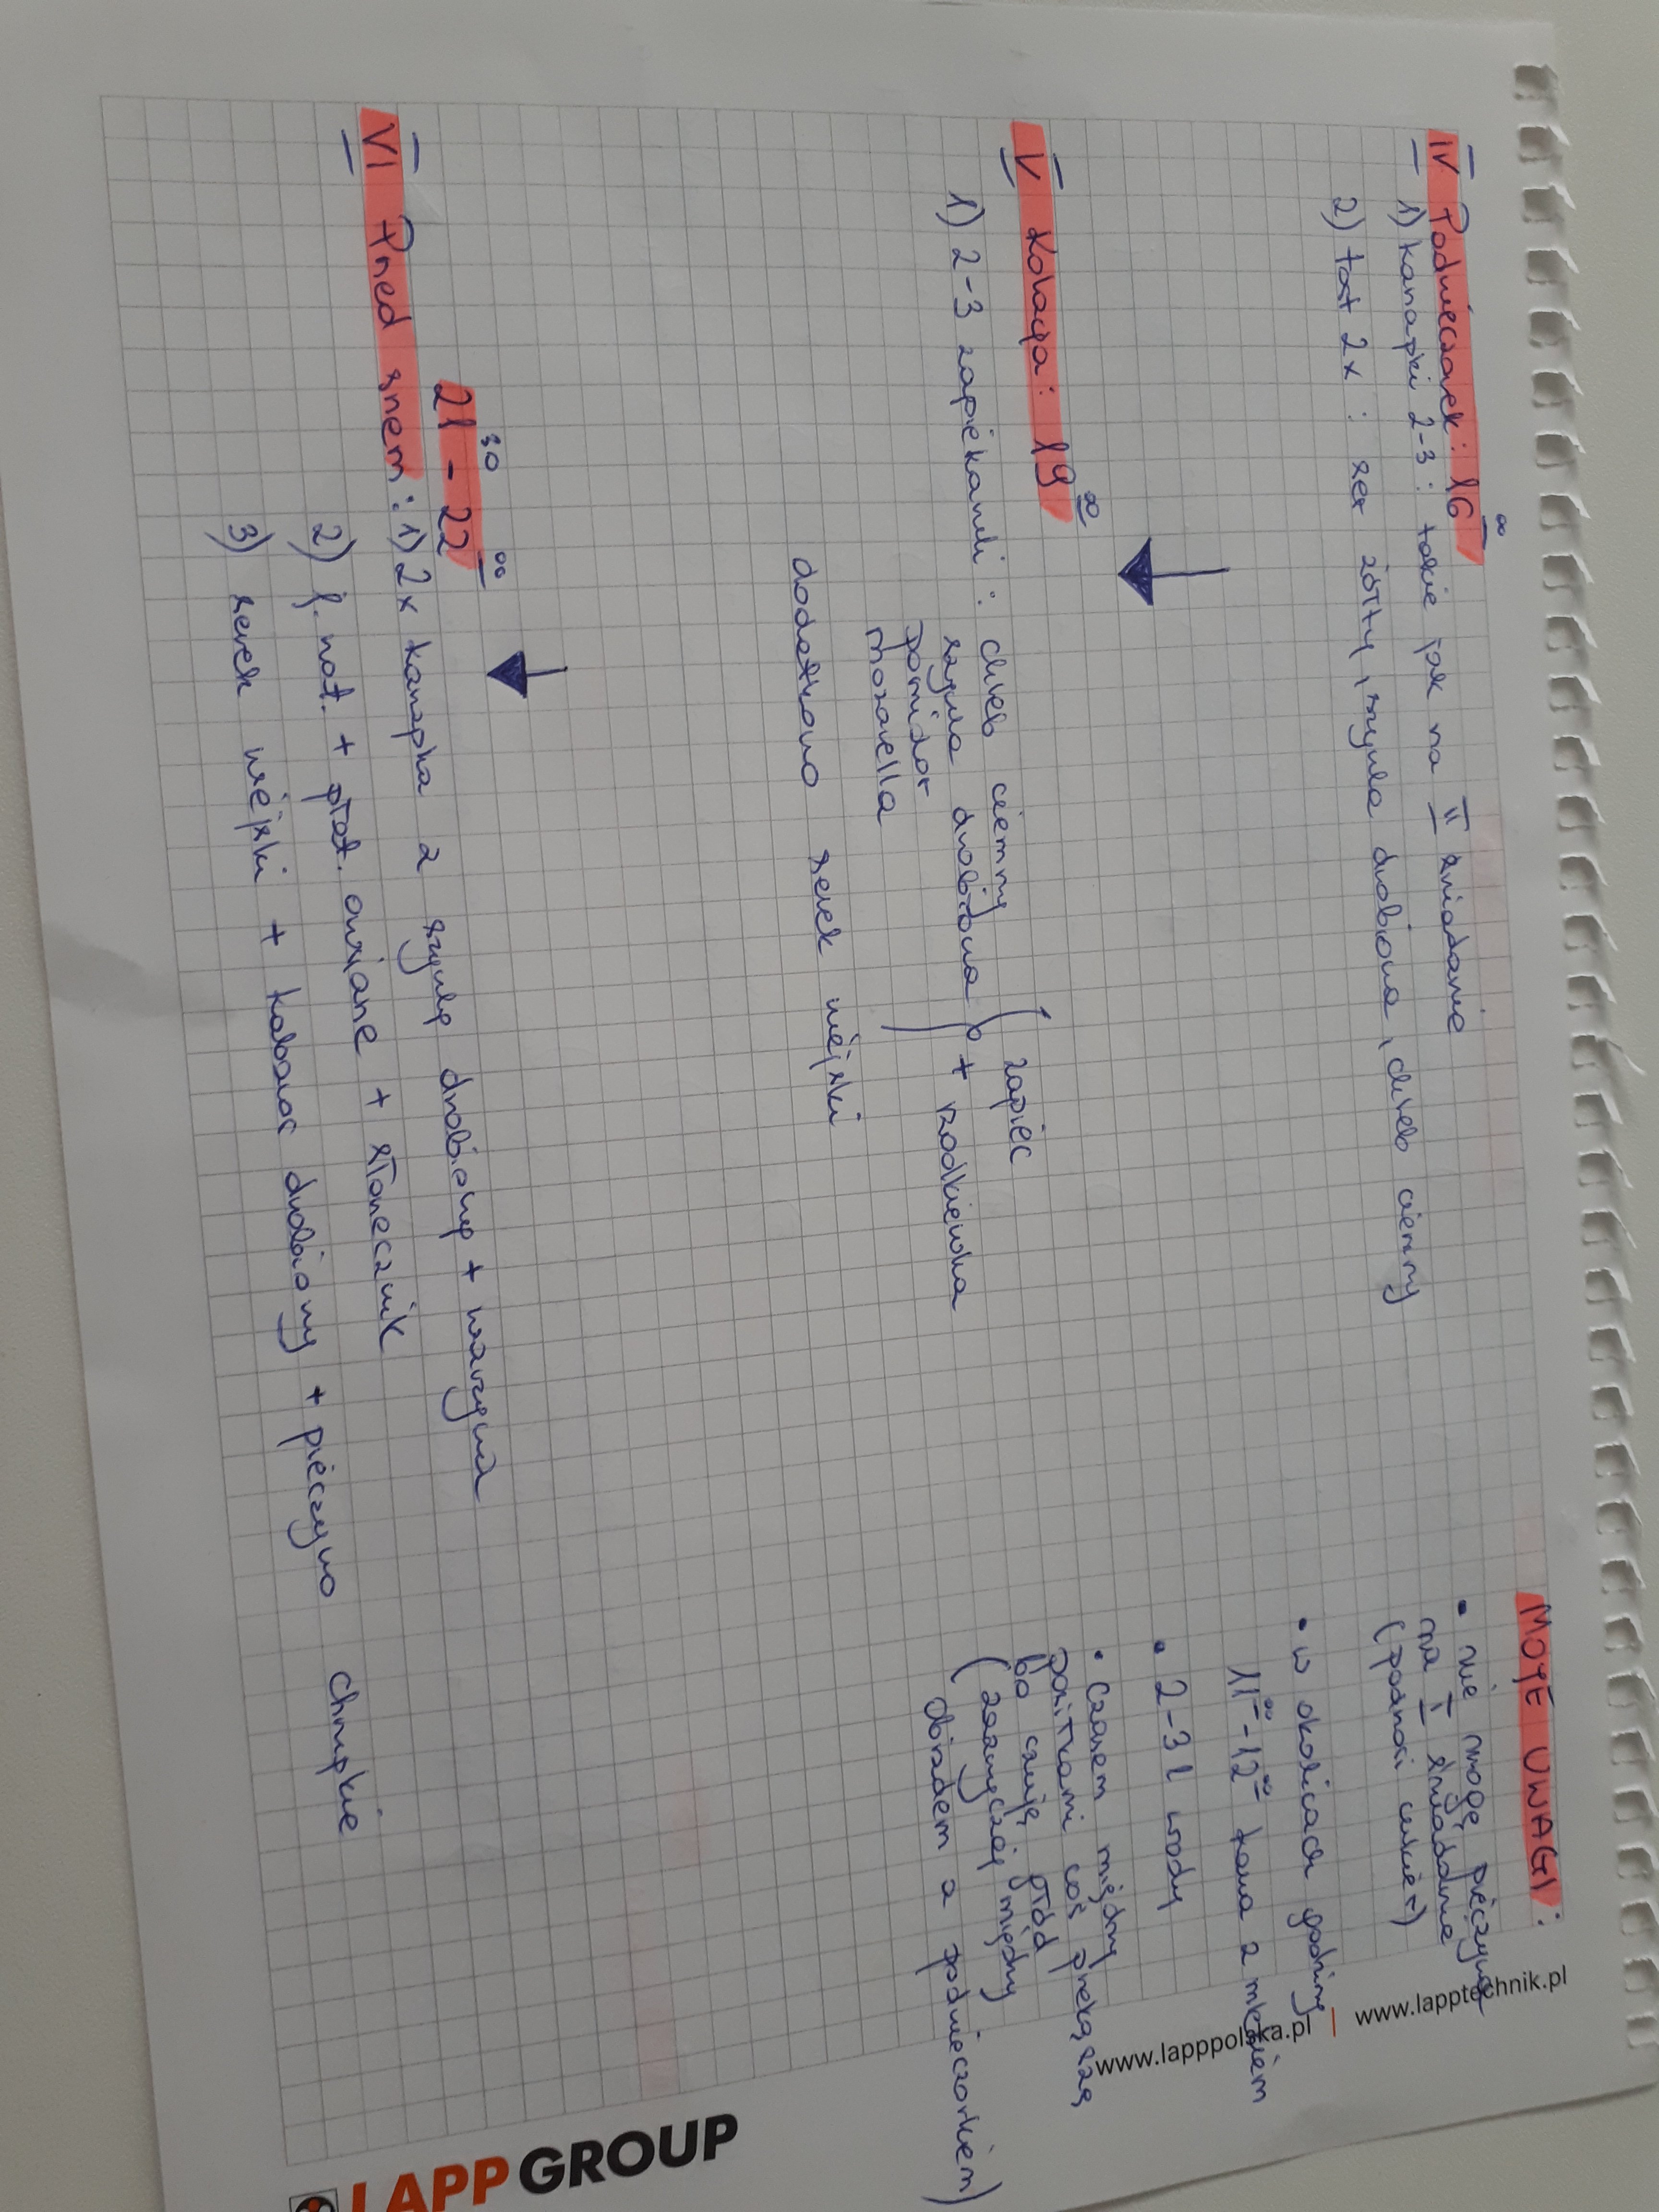 IV Podwieczorek: 16 00
1) kanapki 2-3 : takie jak na II śniadanie
2) tost 2x : ser żółty, szynka drobiowa, chleb ciemny
V Kolacja: 19 00
1) 2-3 zapiekanki : chleb ciemny
szynka drobiowa
pomidor
mozarella
zapiec
+ rzodkiewka
dodatkowo serek wiejski
21 30 - 22 00
VI Przed snem: 1) 2x kanapka z szynką drobiową + warzywa
2) j. nat. + płat. owsiane + słonecznik
3) serek wiejski + kabanos drobiowy + pieczywo chrupkie
MOJE UWAGI:
• nie mogę pieczywa
na I śniadanie
(podnosi cukier)
• w okolicach godziny
11 00 - 12 00 kawa z mlekiem
• 2-3 l wody
• czasem między
posiłkami coś przekąszę
bo czuję głód
(zazwyczaj między
obiadem a podwieczorkiem)
www.lapppolska.pl | www.lapptechnik.pl
LAPP GROUP